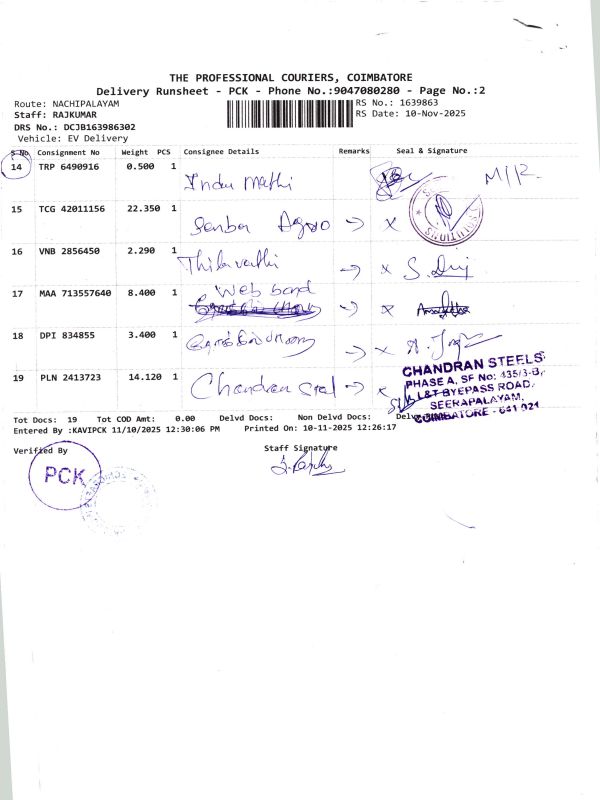 THE PROFESSIONAL COURIERS, COIMBATORE
Delivery Runsheet - PCK - Phone No.:9047080280 - Page No.:2
Route: NACHIPALAYAM
RS No.: 1639863
Staff: RAJKUMAR
RS Date: 10-Nov-2025
DRS No.: DCJB163986302
Vehicle: EV Delivery
S No Consignment No Weight PCS Consignee Details Remarks Seal & Signature
14 TRP 6490916 0.500 1 Indu Mathi
15 TCG 42011156 22.350 1 Senba Agro
16 VNB 2856450 2.290 1 Thilavathi
17 MAA 713557640 8.400 1 Web band
18 DPI 834855 3.400 1
19 PLN 2413723 14.120 1 Chandran Steel
CHANDRAN STEELS
PHASE A, SF No: 435/3-B,
L&T BYEPASS ROAD,
SEERAPALAYAM,
COIMBATORE - 641 021
Tot Docs: 19 Tot COD Amt: 0.00 Delvd Docs: Non Delvd Docs:
Entered By :KAVIPCK 11/10/2025 12:30:06 PM Printed On: 10-11-2025 12:26:17
Verified By Staff Signature
PCK